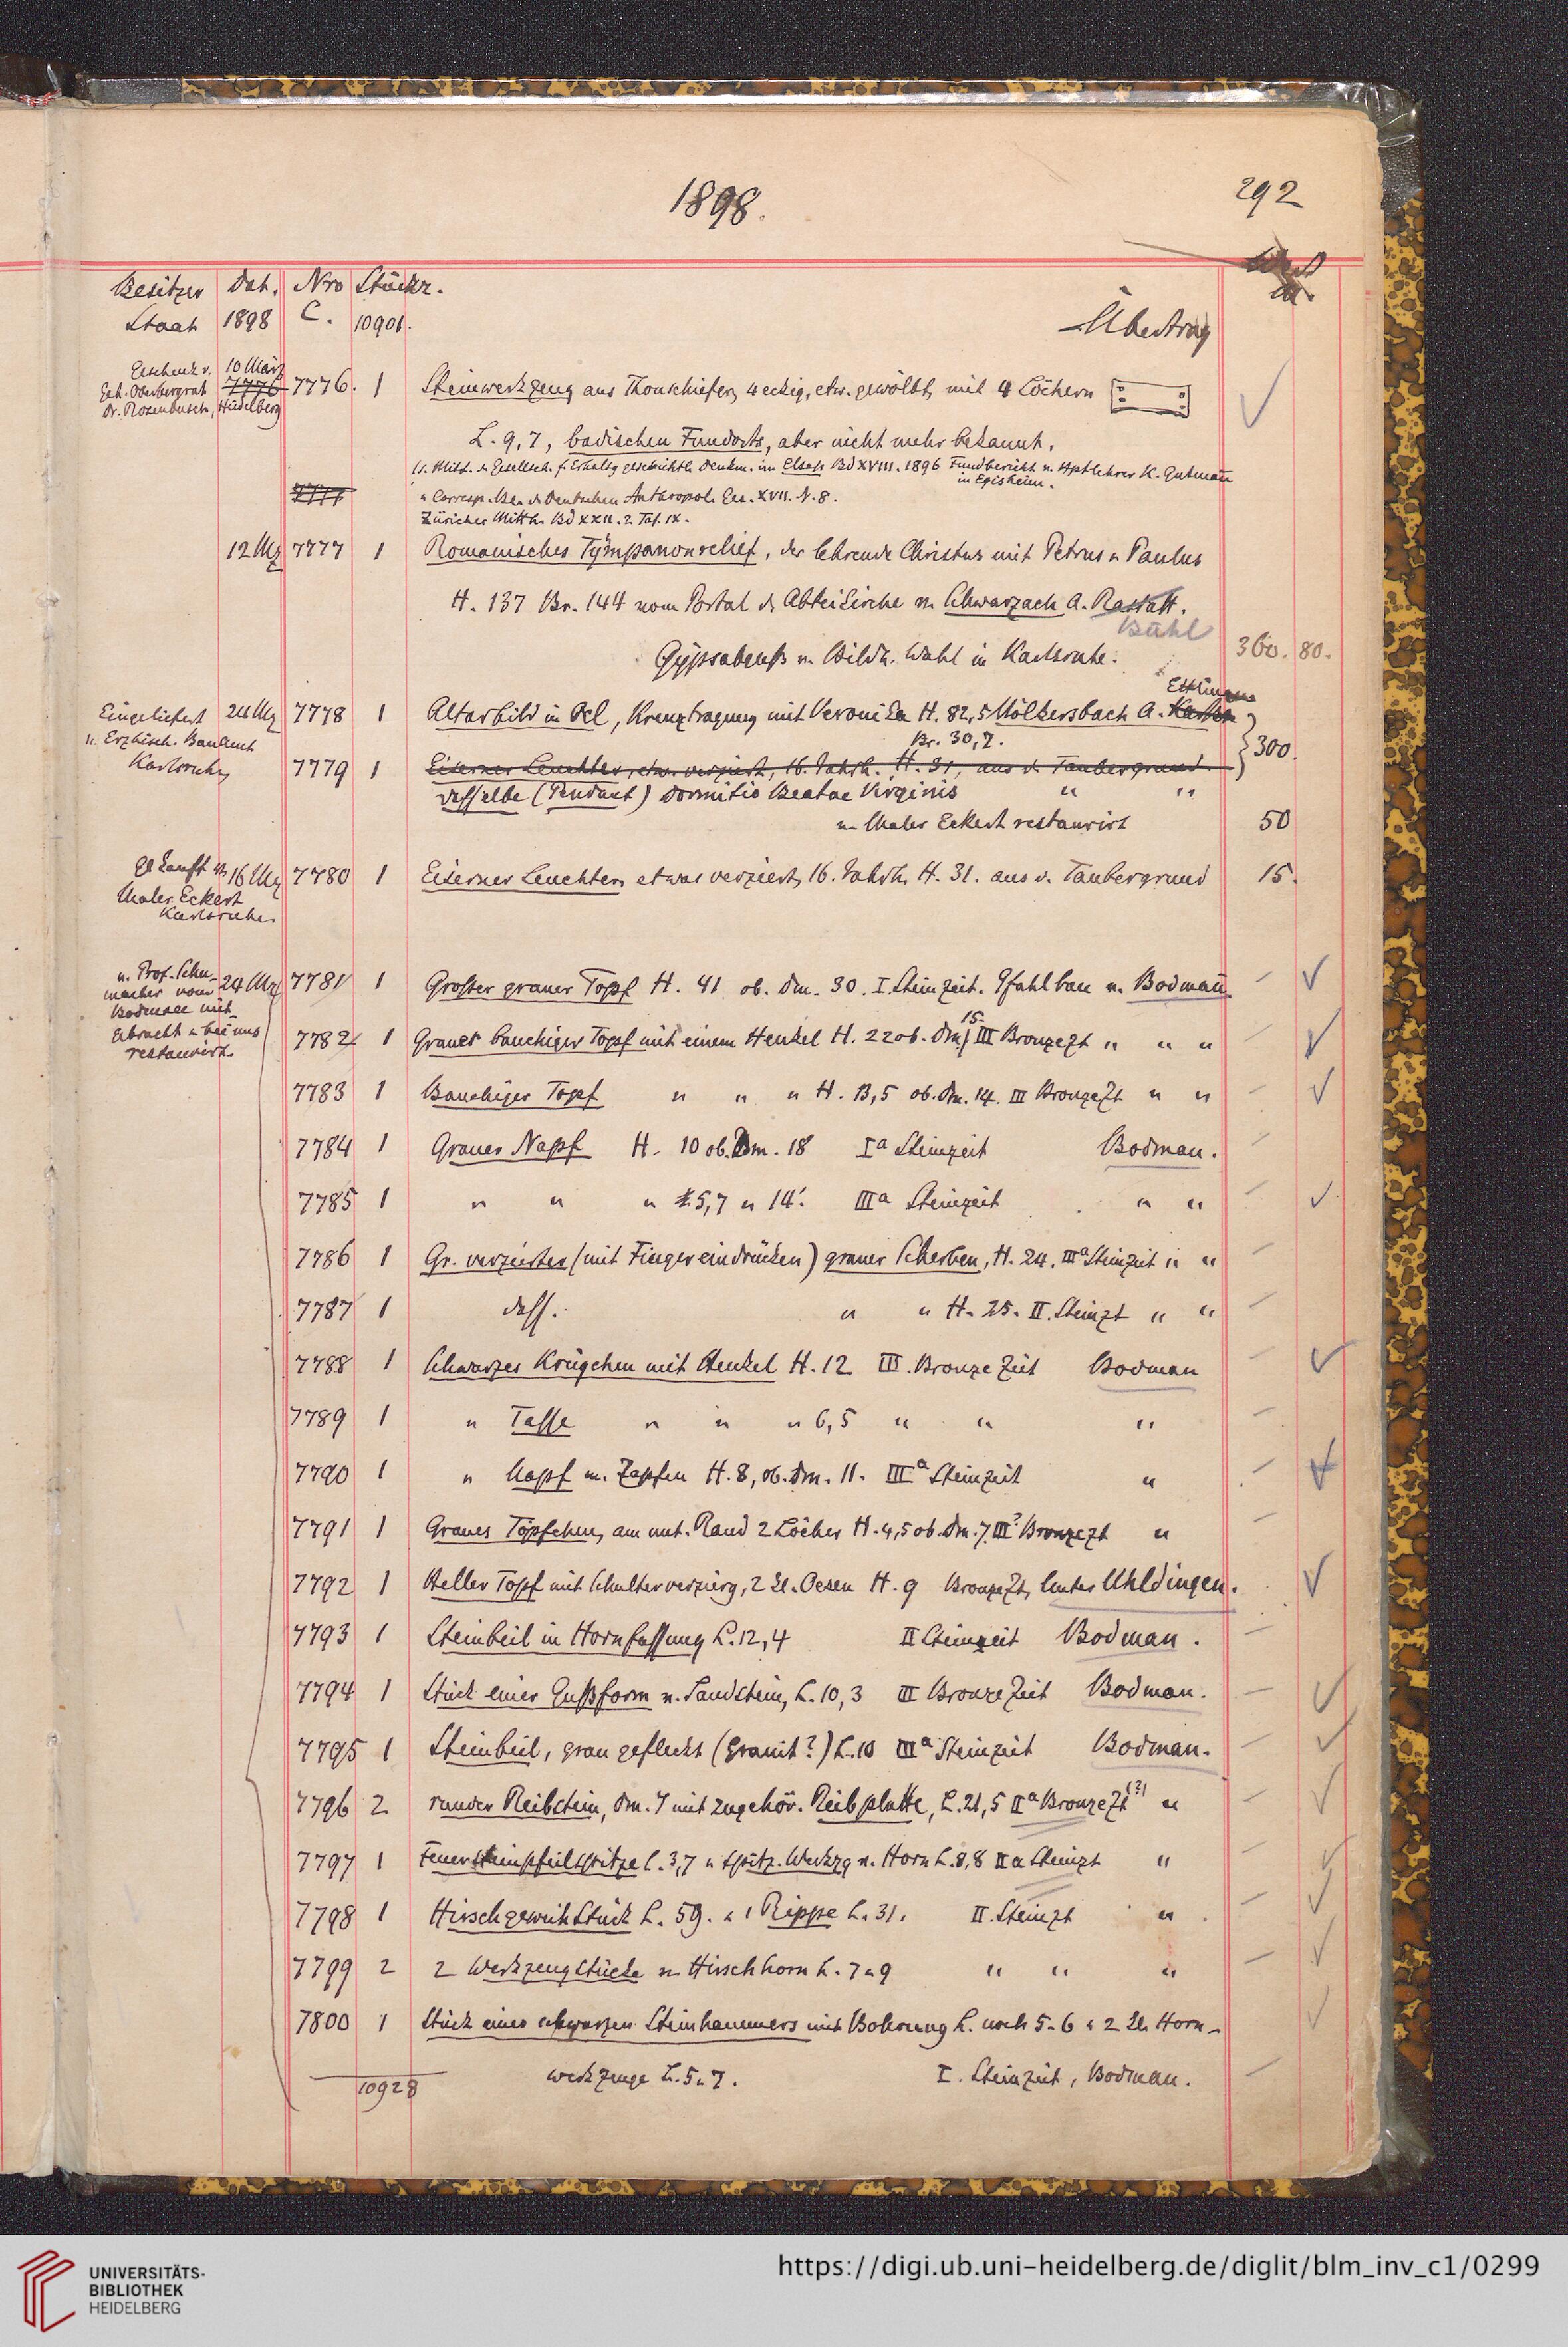 1898.
292
Besitzer Dat. Nro Stückz.
Staat 1898 C. 10901. Übertrag
Geschenk v. 10 März
Geh. Oberbergrat 7776 7776. 1 Steinwerkzeug aus Thonschiefer, 4 eckig, etw. gewölbt, mit 4 Löchern
Dr. Rosenbusch, Heidelberg
L. 9,7, badischen Fundorts, aber nicht mehr bekannt.
(s. Mitt. d. Gesellsch. f. Erhaltg geschichtl. Denkm. im Elsass Bd XVIII. 1896 Fundbericht v. Hptlehrer K. Gutmann
in Egisheim.
7777
u Corresp. Bl. d. Deutschen Anthropol. Ges. XVII. N. 8.
Züricher Mitth. Bd XXII. 2 Taf. IX.
12 Mz 7777 1 Romanisches Tympanonrelief, der lehrende Christus mit Petrus u Paulus
H. 137 Br. 144 vom Portal d. Abteikirche v. Schwarzach A. Rastatt.
Bühl
Gypsabguß v. Bildh. Wahl in Karlsruhe. 360. 80.
Ettlingen
Eingeliefert 24 Mz 7778 1 Altarbild in Oel, Kreuztragung mit Veronika H. 82,5 Mölkersbach A.
v. Erzbisch. Bauamt Br. 30,7. 300.
Karlsruhe 7779 1 Eiserner Leuchter, etw. verziert, 16. Jahrh. H. 31, aus d. Taubergrund.
dasselbe (Pendant) Dormitio Beatae Virginis " "
v. Maler Eckert restaurirt 50
gekauft v. 16 Mz 7780 1 Eiserner Leuchter, etwas verziert, 16. Jahrh. H. 31. aus d. Taubergrund 15.
Maler Eckert
Karlsruhe.
v. Prof. Schu- 24 Mz 7781 1 Großer grauer Topf H. 41 ob. Dm. 30. I. Steinzeit. Pfahlbau v. Bodman.
macher vom
Bodensee mit-
gebracht u bei uns 7782 1 Grauer bauchiger Topf mit einem Henkel H. 22 ob. Dm. 15. III Bronzezt " " "
restaurirt.
7783 1 Bauchiger Topf " " " H. 13,5 ob. Dm. 14. III Bronzezt " "
7784 1 Grauer Napf H. 10 ob. Dm. 18 Ia Steinzeit Bodman.
7785 1 " " " 5,7 " 14. IIIa Steinzeit " "
7786 1 Gr. verzierter (mit Fingereindrücken) grauer Scherben, H. 24. IIIa Steinzeit " "
7787 1 dess. " " H. 25. II. Steinzt " "
7788 1 Schwarzes Krügchen mit Henkel H. 12 III. Bronze Zeit Bodman
7789 1 " Tasse " " " 6,5 " " "
7790 1 " Napf m. Zapfen H. 8, ob. Dm. 11. IIIa Steinzeit "
7791 1 Graues Töpfchen, am unt. Rand 2 Löcher H. 4,5 ob. Dm. 7. III? Bronzezt "
7792 1 Heller Topf mit Schulterverzierg, 2 kl. Oesen H. 9 Bronzezt, Unter Uhldingen.
7793 1 Steinbeil in Hornfassung L. 12,4 II Steinzeit Bodman.
7794 1 Stück einer Gußform v. Sandstein, L. 10,3 III Bronze Zeit Bodman.
7795 1 Steinbeil, grau gefleckt (Granit?) L. 10 IIIa Steinzeit Bodman.
7796 2 runder Reibstein, Dm. 7 mit zugehör. Reibplatte, L. 21,5 IIa Bronzezt (?) "
7797 1 Feuersteinpfeilspitze L. 3,7 u spitz. Werkzg v. Horn L. 8,8 IIa Steinzt "
7798 1 Hirschgeweihstück L. 59. u 1 Rippe L. 31. II. Steinzt "
7799 2 2 Werkzeugstücke v. Hirschhorn L. 7 u 9 " " "
7800 1 Stück eines schwarzen Steinhammers mit Bohrung L. noch 5-6 u 2 kl. Horn-
10928 werkzeuge L. 5 u 7. I. Steinzeit, Bodman.
UNIVERSITÄTS-
BIBLIOTHEK
HEIDELBERG
https://digi.ub.uni-heidelberg.de/diglit/blm_inv_c1/0299